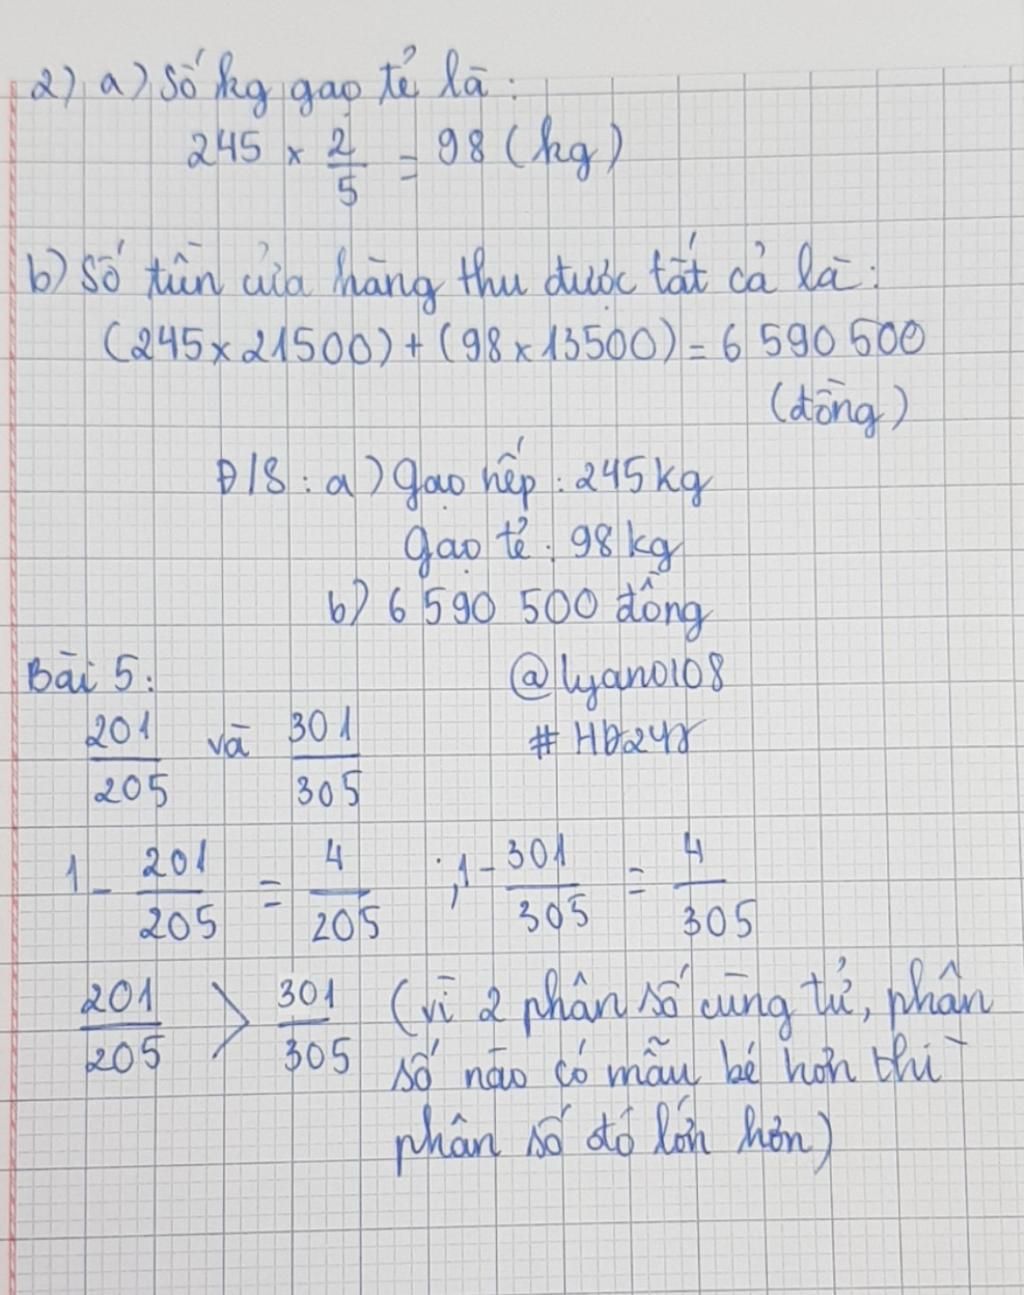 2) a) Số kg gạo tẻ là:
245 × 2/5 = 98 (kg)
b) Số tiền cửa hàng thu được tất cả là:
(245 x 21500) + (98 x 13500) = 6 590 500
(đồng)
Đ/S: a) gạo nếp: 245 kg
gạo tẻ: 98 kg
b) 6 590 500 đồng
Bài 5:
@lyano108
201/205 và 301/305
1 - 201/205 = 4/205 ; 1 - 301/305 = 4/305
201/205 > 301/305 (vì 2 phân số cùng tử, phân
số nào có mẫu bé hơn thì
phân số đó lớn hơn)